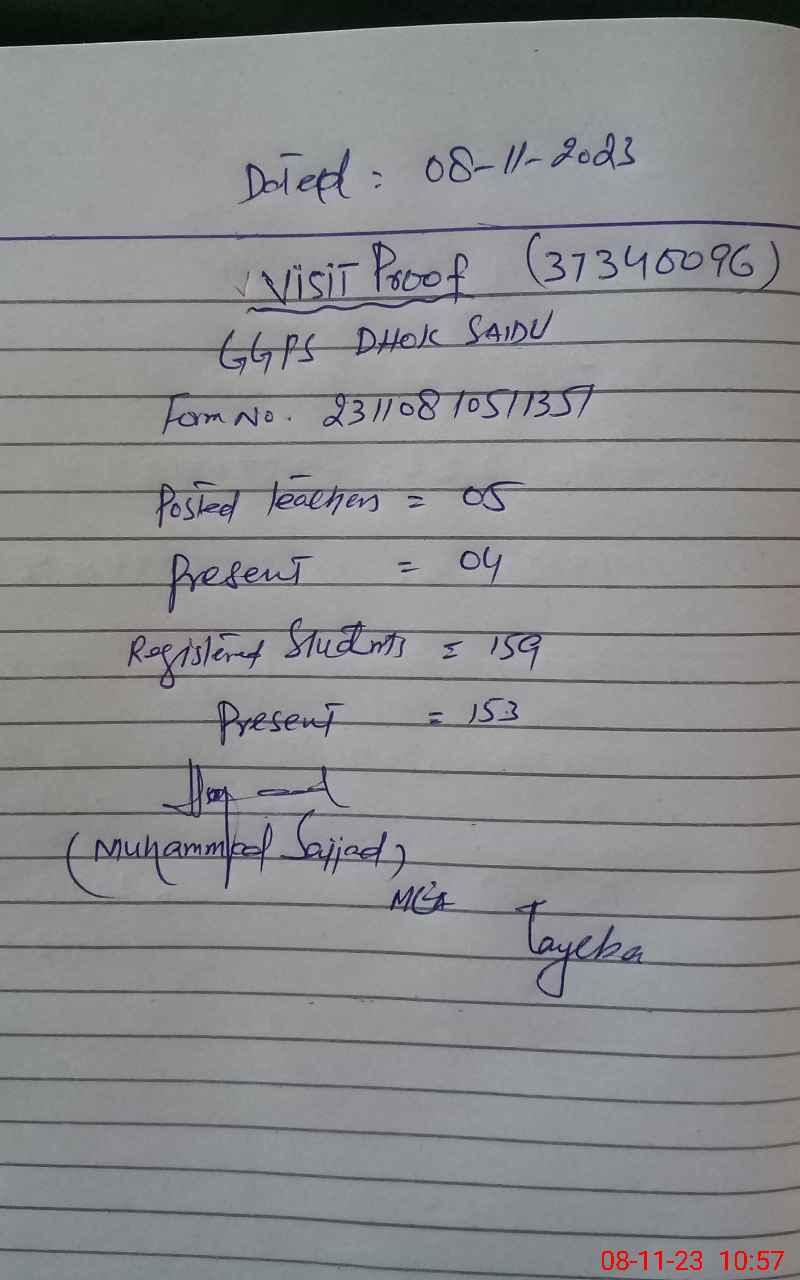 Dated = 08-11-2023
Visit Proof (37340096)
GGPS DHOK SAIDU
Form No. 23110810511351
Posted teachers = 05
Present = 04
Registered Students = 159
Present = 153
(Muhammad Sajjad)
MEA
Tayeba
08-11-23 10:57